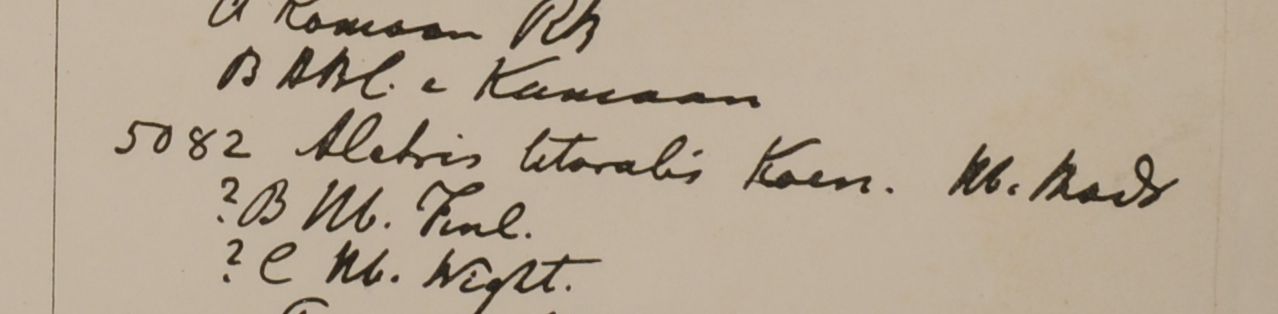 A Kamaon RB
B HBC. e Kamaon
5082 Aletris litoralis Koen. Hb. Mads
?B Hb. Finl.
?C Hb. Wight.